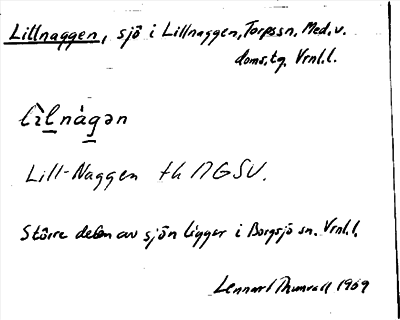 Lillnaggen, sjö i Lillnaggen, Torpssn, Med. v.
doms. tg. Vrnl. l.
lìlnàgən
Lill-Naggen tk NGSV.
Större delen av sjön ligger i Borgsjö sn. Vrnl. l.
Lennart Thunvall 1969